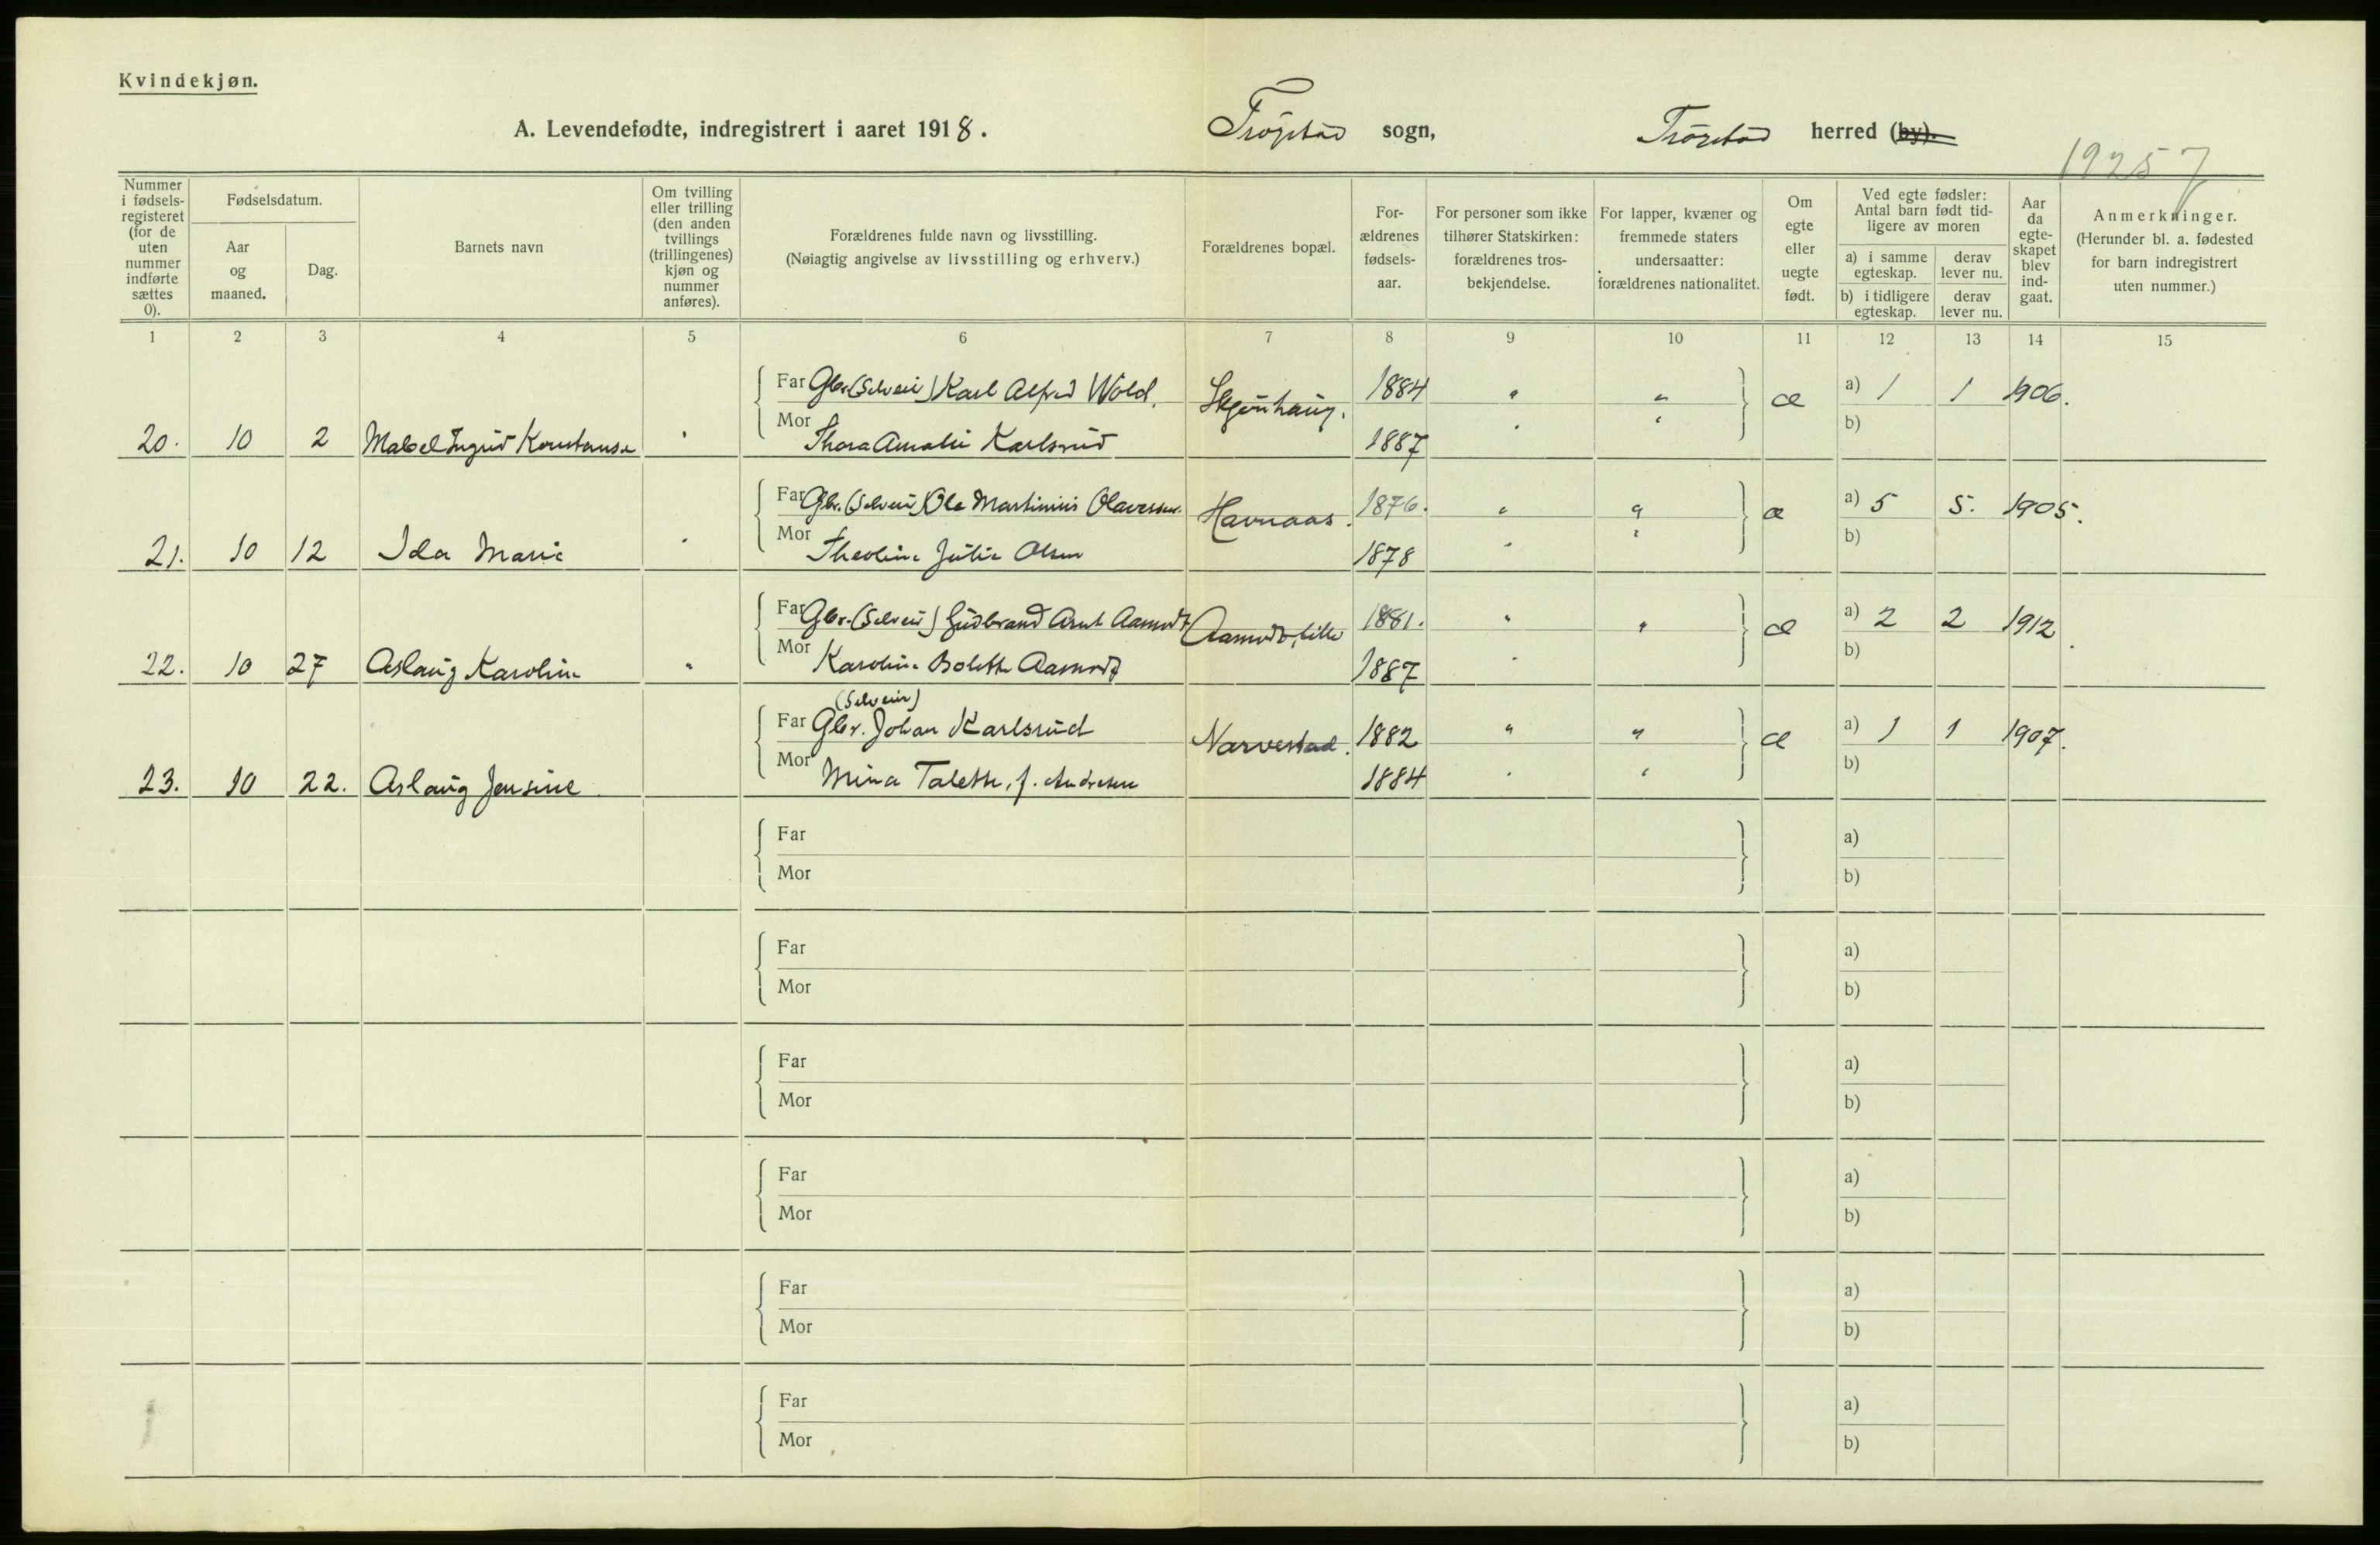 Kvindekjøn.
A. Levendefødte, indregistrert i aaret 1918. Trøgstad sogn, Trøgstad herred (by).
19257
Nummer i fødselsregisteret (for de uten nummer indførte sættes 0).
Fødselsdatum.
Aar og maaned.
Dag.
Barnets navn
Om tvilling eller trilling (den anden tvillings (trillingenes) kjøn og nummer anføres).
Forældrenes fulde navn og livsstilling.
(Nøiagtig angivelse av livsstilling og erhverv.)
Forældrenes bopæl.
Forældrenes fødselsaar.
For personer som ikke tilhører Statskirken: forældrenes trosbekjendelse.
For lapper, kvæner og fremmede staters undersaatter: forældrenes nationalitet.
Om egte eller uegte født.
Ved egte fødsler: Antal barn født tidligere av moren
a) i samme egteskap. derav lever nu.
b) i tidligere egteskap. derav lever nu.
Aar da egteskapet blev indgaat.
Anmerkninger.
(Herunder bl. a. fødested for barn indregistrert uten nummer.)
1 2 3 4 5 6 7 8 9 10 11 12 13 14 15
Far Gbr. (Selveier) Karl Alfred Wold. Skjønhaug. 1884 " " æ a) 1 1 1906.
20. 10 2 Mabel Ingrid Konstanse " Mor Thora Amalie Karlsrud 1887 " " b)
Far Gbr. (Selveier) Ole Martinius Olavessen. Havnaas. 1876. " " æ a) 5 5. 1905.
21. 10 12 Ida Marie " Mor Theoline Julie Olsen 1878 " " b)
Far Gbr. (Selveier) Gudbrand Arnt Aamodt Aamodt, lille 1881. " " æ a) 2 2 1912.
22. 10 27 Aslaug Karoline " Mor Karoline Bolette Aamodt 1887 " b)
(Selveier)
Far Gbr. Johan Karlsrud Narvestad. 1882 " " æ a) 1 1 1907.
23. 10 22. Aslaug Jensine Mor Mina Talette, f. Andresen 1884 " " b)
Far a)
Mor b)
Far a)
Mor b)
Far a)
Mor b)
Far a)
Mor b)
Far a)
Mor b)
Far a)
Mor b)